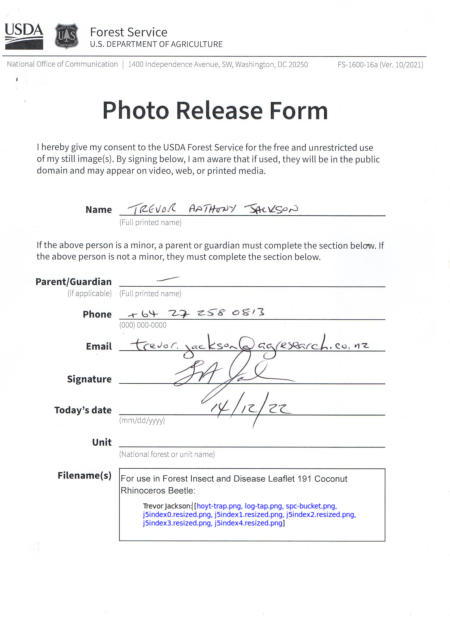 USDA
Forest Service
U.S. DEPARTMENT OF AGRICULTURE
National Office of Communication | 1400 Independence Avenue, SW, Washington, DC 20250 FS-1600-16a (Ver. 10/2021)
Photo Release Form
I hereby give my consent to the USDA Forest Service for the free and unrestricted use
of my still image(s). By signing below, I am aware that if used, they will be in the public
domain and may appear on video, web, or printed media.
Name TREVOR ANTHONY JACKSON
(Full printed name)
If the above person is a minor, a parent or guardian must complete the section below. If
the above person is not a minor, they must complete the section below.
Parent/Guardian —
(if applicable) (Full printed name)
Phone +64 27 258 0813
(000) 000-0000
Email trevor.jackson@agresearch.co.nz
Signature
Today's date 14/12/22
(mm/dd/yyyy)
Unit
(National forest or unit name)
Filename(s) For use in Forest Insect and Disease Leaflet 191 Coconut
Rhinoceros Beetle:
Trevor Jackson:[hoyt-trap.png, log-tap.png, spc-bucket.png,
j5index0.resized.png, j5index1.resized.png, j5index2.resized.png,
j5index3.resized.png, j5index4.resized.png]